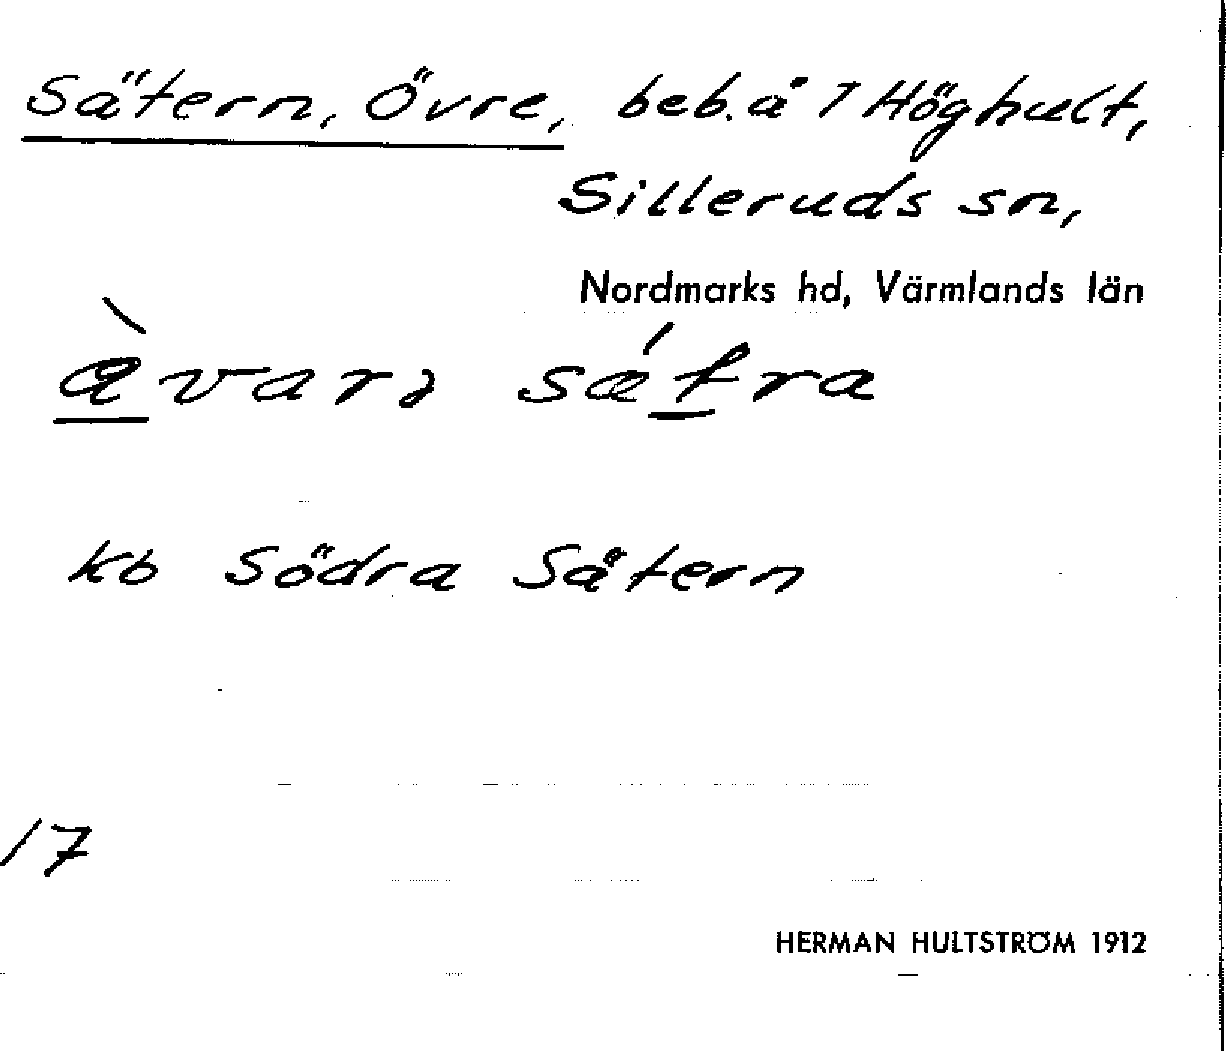 Sätern, Övre, beb. å 7 Höghult,
Silleruds sn,
Nordmarks hd, Värmlands län
kb Södra Sätern
17
HERMAN HULTSTRÖM 1912